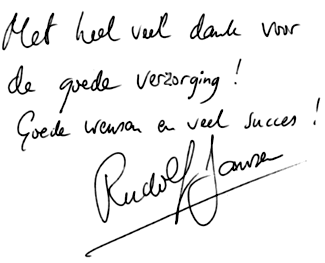 Met heel veel dank voor
de goede verzorging!
Goede wensen en veel succes!
Rudolf Jansen